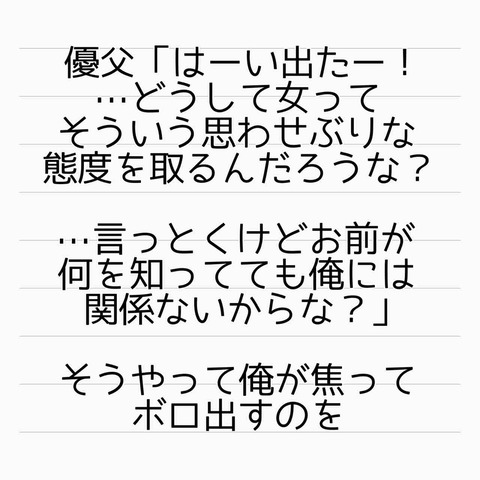 優父「はーい出たー！
…どうして女って
そういう思わせぶりな
態度を取るんだろうな？
…言っとくけどお前が
何を知ってても俺には
関係ないからな？」
そうやって俺が焦って
ボロ出すのを